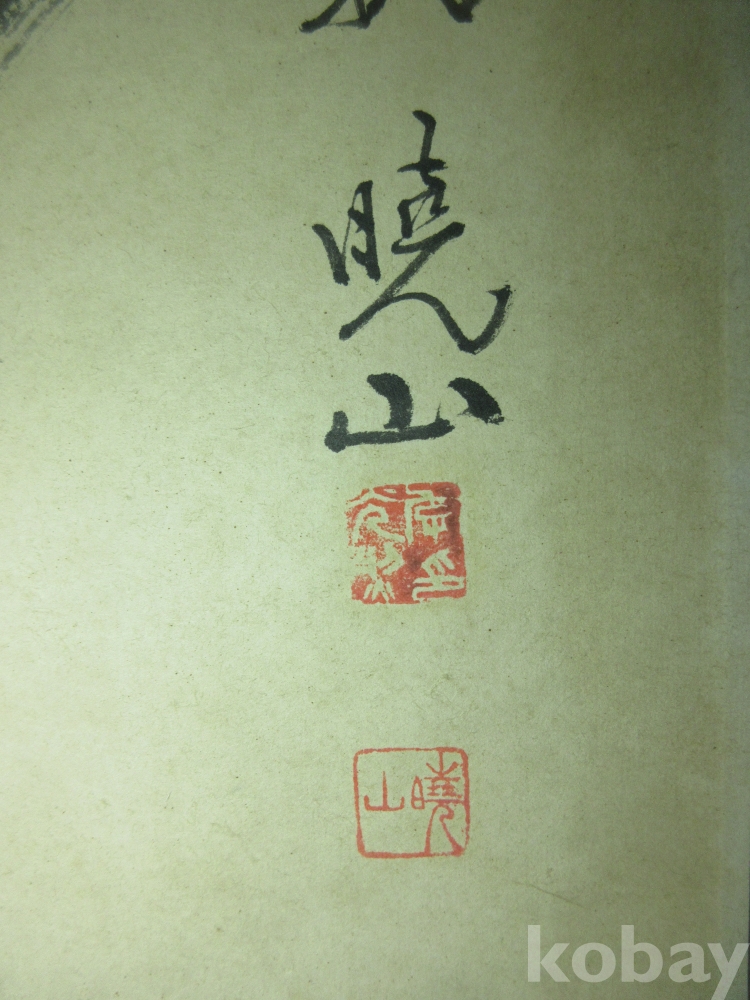 曉
山
曉山
kobay